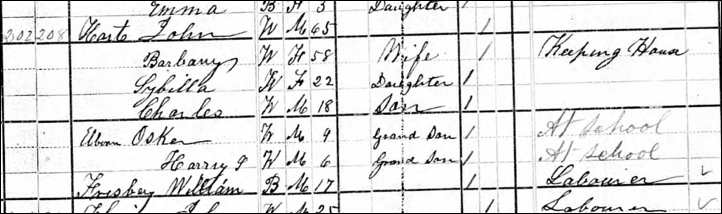 Emma B F 3 Daughter 1
202 208 Hart John W M 65 1
Barbary W F 58 Wife 1 Keeping House
Sybilla W F 22 Daughter 1
Charles W M 18 Son 1
Osker W M 9 Grand Son 1 At School
Harry P W M 6 Grand Son 1 At School
Frisbey William B M 17 1 Labourer ✓
W M 25 1 Labourer ✓